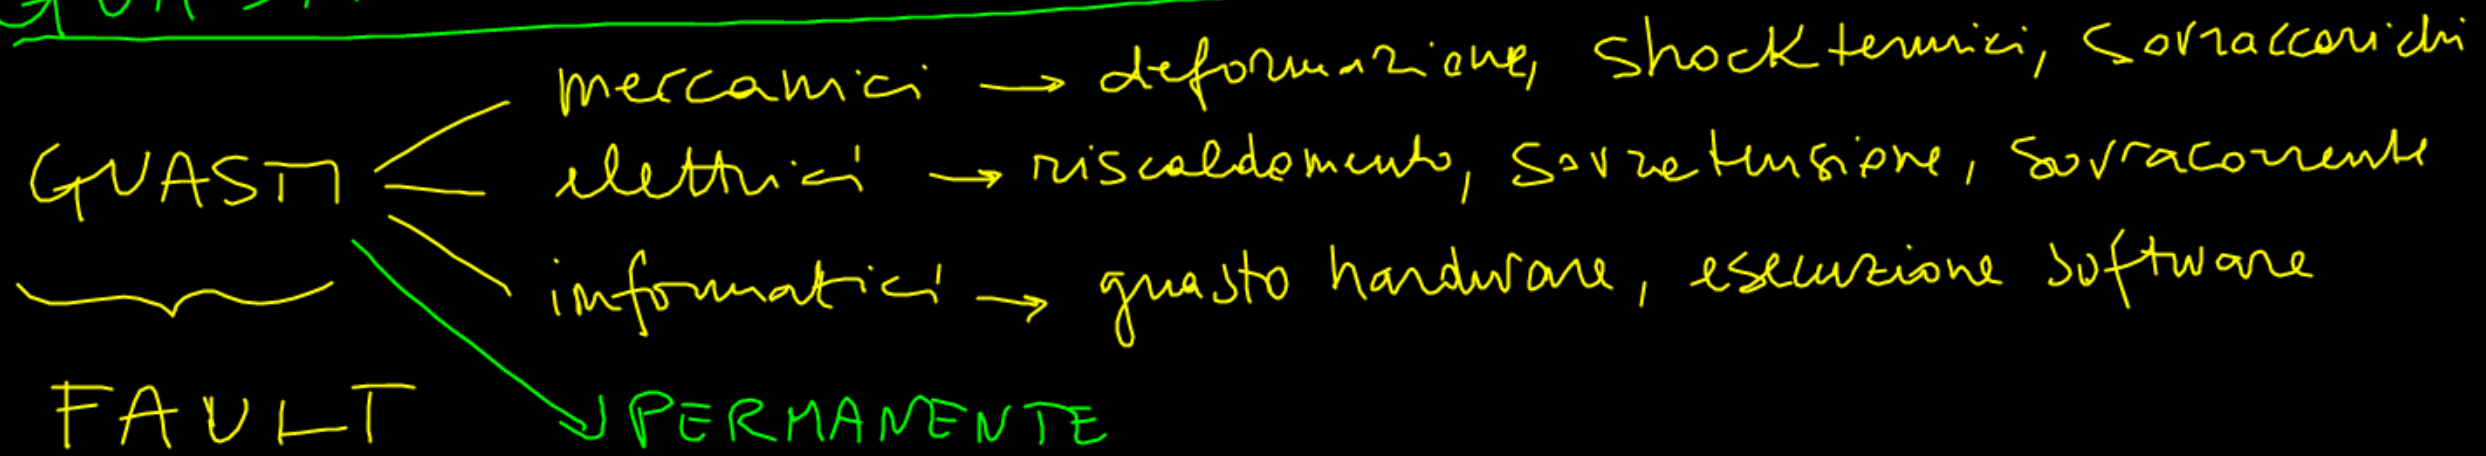 meccanici → deformazione, shock termici, sovraccarichi
GUASTI elettrici → riscaldamento, sovratensione, sovracorrente
informatici → guasto hardware, esecuzione software
FAULT PERMANENTE